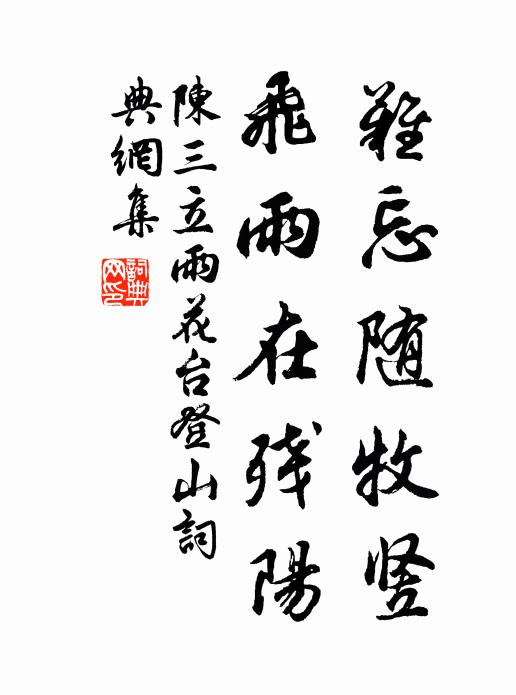 難忘随牧竖
飛雨在残陽
陳三立雨花台登山詞
典網集
詞典
网印